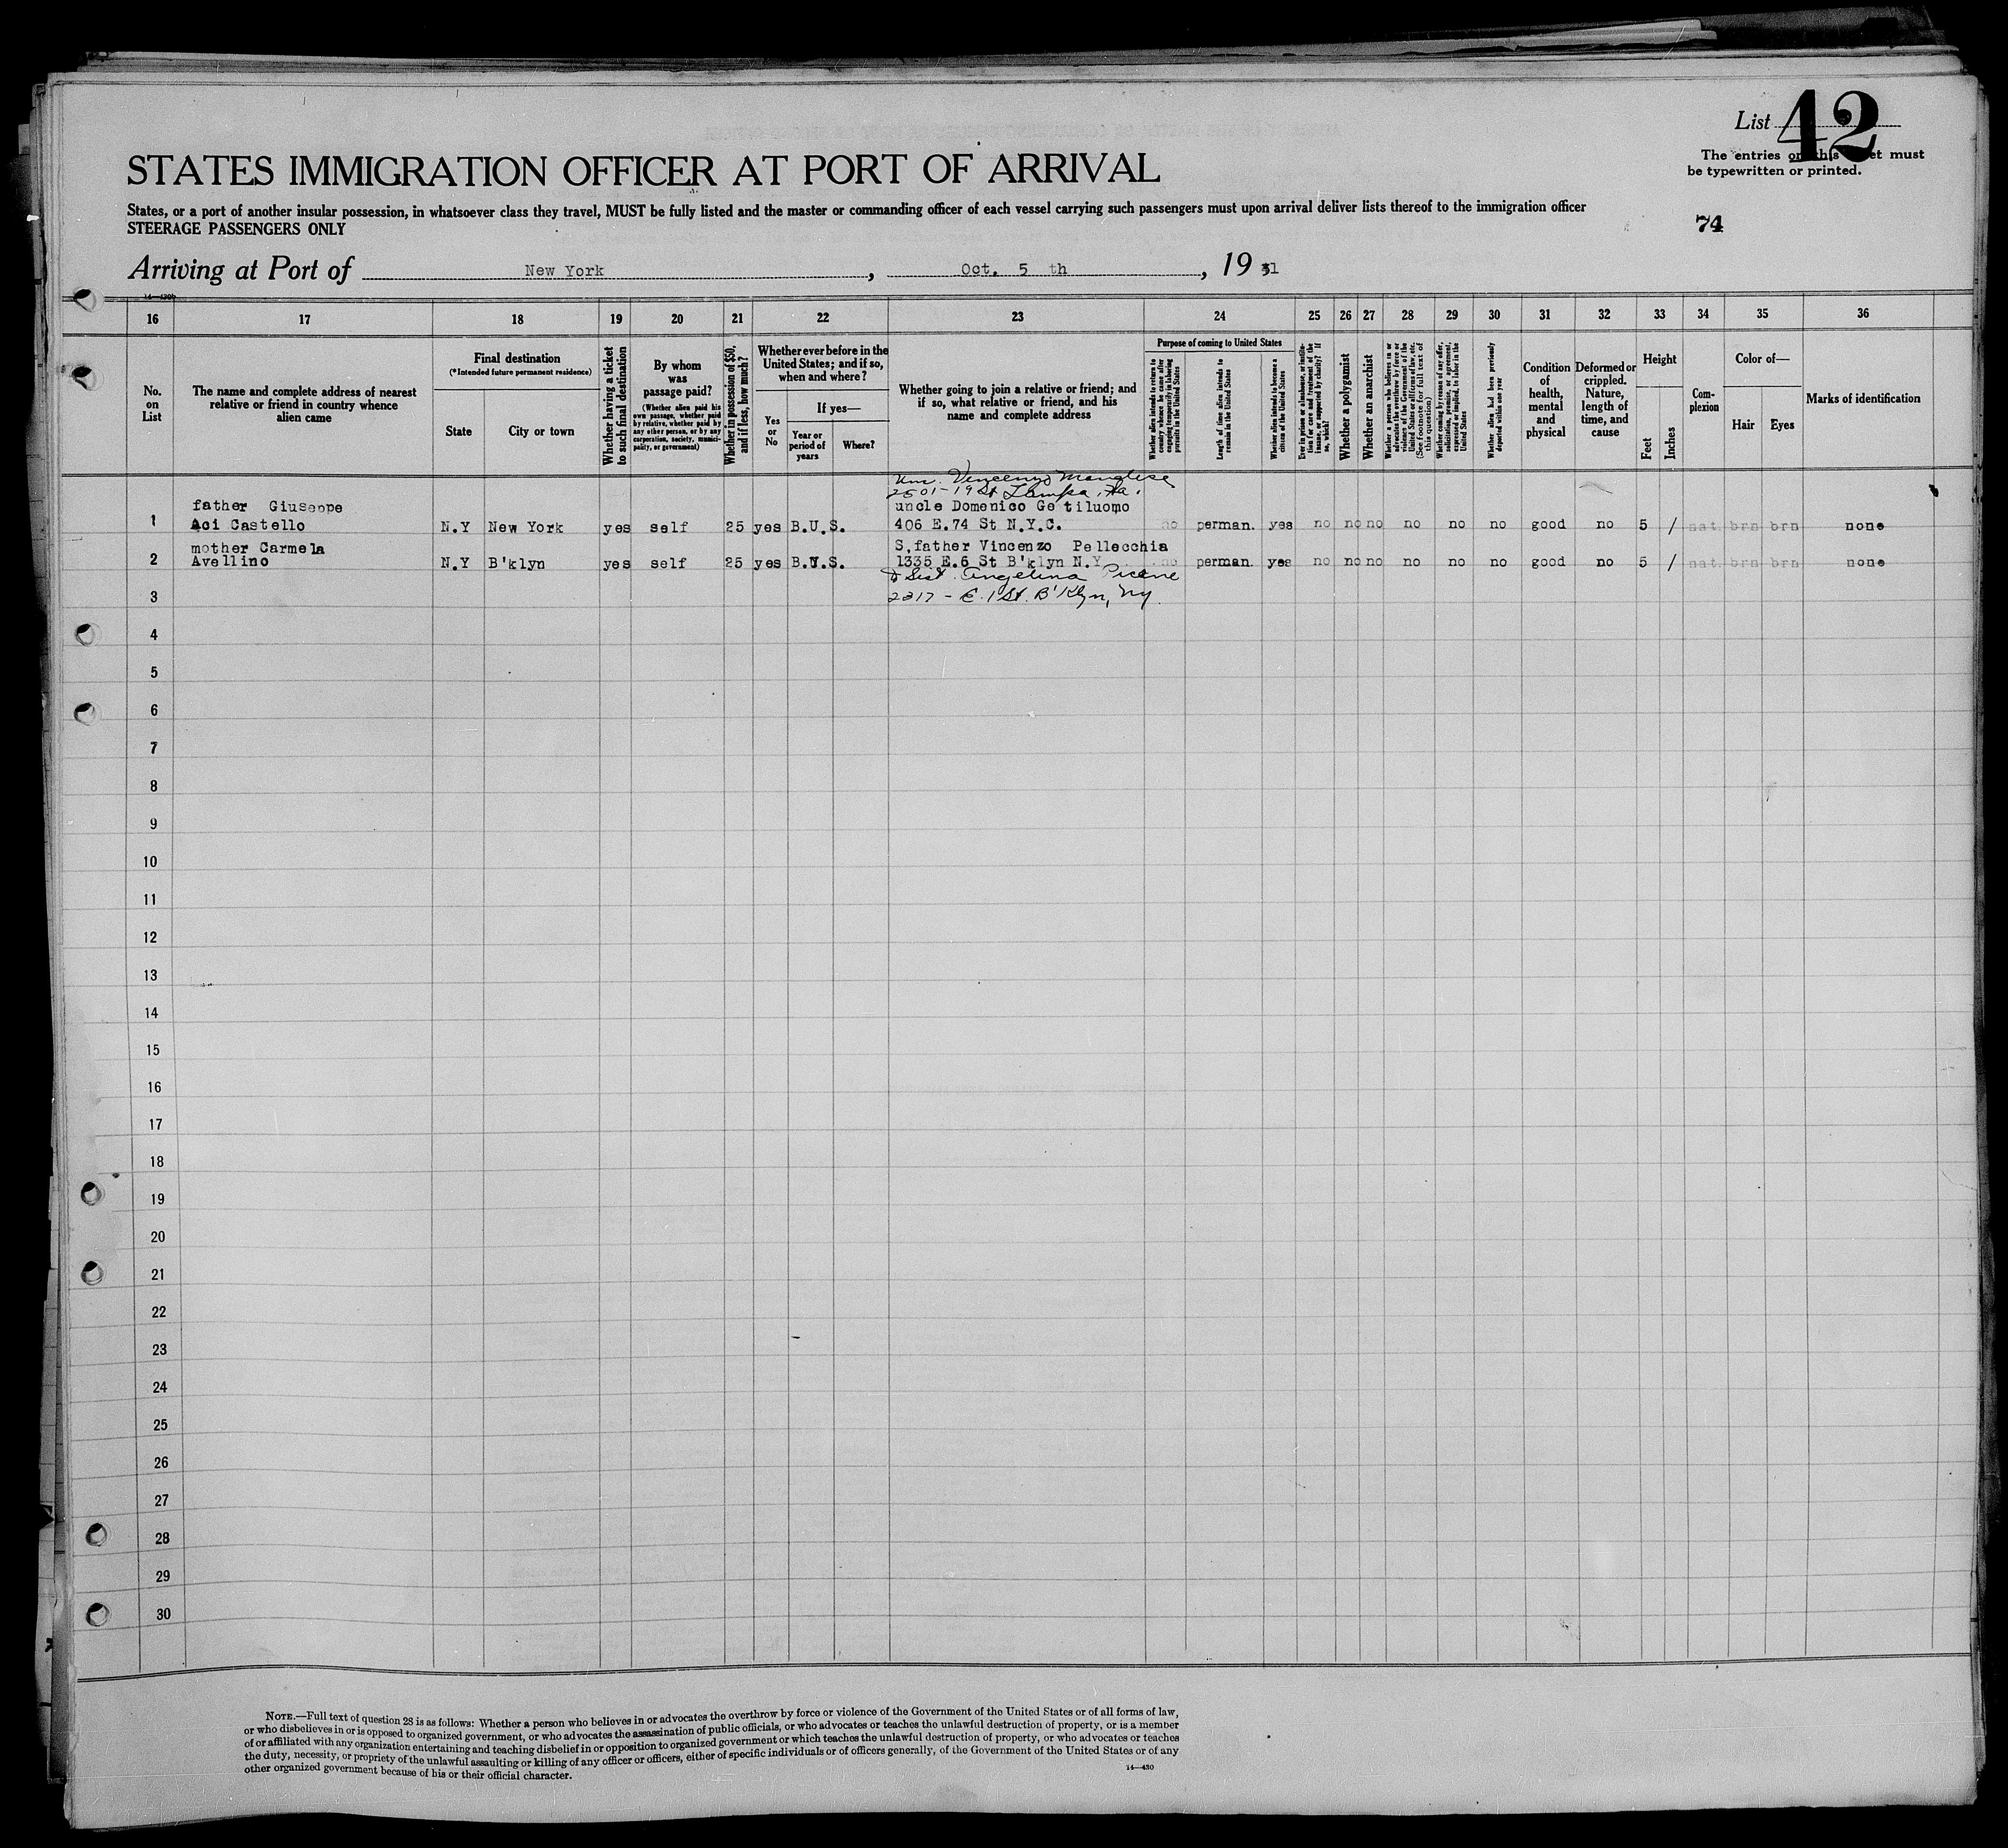 List 42
The entries on this sheet must
be typewritten or printed.
STATES IMMIGRATION OFFICER AT PORT OF ARRIVAL
States, or a port of another insular possession, in whatsoever class they travel, MUST be fully listed and the master or commanding officer of each vessel carrying such passengers must upon arrival deliver lists thereof to the immigration officer
STEERAGE PASSENGERS ONLY
74
Arriving at Port of New York, Oct. 5 th, 1931
14—430b
16 17 18 19 20 21 22 23 24 25 26 27 28 29 30 31 32 33 34 35 36
No.
on
List
The name and complete address of nearest
relative or friend in country whence
alien came
Final destination
(*Intended future permanent residence)
State
City or town
Whether having a ticket
to such final destination
By whom
was
passage paid?
(Whether alien paid his
own passage, whether paid
by relative, whether paid by
any other person, or by any
corporation, society, munici-
pality, or government)
Whether in possession of $50,
and if less, how much?
Whether ever before in the
United States; and if so,
when and where?
Yes
or
No
If yes—
Year or
period of
years
Where?
Whether going to join a relative or friend; and
if so, what relative or friend, and his
name and complete address
Purpose of coming to United States
Whether alien intends to return to
country whence he came after
engaging temporarily in laboring
pursuits in the United States
Length of time alien intends to
remain in the United States
Whether alien intends to become a
citizen of the United States
Ever in prison or almshouse, or institu-
tion for care and treatment of the
insane, or supported by charity? If
so, which?
Whether a polygamist
Whether an anarchist
Whether a person who believes in or
advocates the overthrow by force or
violence of the Government of the
United States or all forms of law, etc.
(See footnote for full text of
this question)
Whether coming by reason of any offer,
solicitation, promise, or agreement,
expressed or implied, to labor in the
United States
Whether alien had been previously
deported within one year
Condition
of
health,
mental
and
physical
Deformed or
crippled.
Nature,
length of
time, and
cause
Height
Feet
Inches
Com-
plexion
Color of—
Hair
Eyes
Marks of identification
2501-19 St Tampa, Fla.
father Giuseppe uncle Domenico Ge tiluomo
1 Aci Castello N.Y New York yes self 25 yes B.U.S. 406 E.74 St N.Y.C. no perman. yes no no no no no no good no 5 / nat. brn brn none
mother Carmela S,father Vincenzo Pellecchia
2 Avellino N.Y B'klyn yes self 25 yes B.U.S. 1335 E.6 St B'klyn N.Y. no perman. yes no no no no no no good no 5 / nat. brn brn none
Sist. Angelina Picone
3 2317 - E. 1 St. B'Klyn, Ny.
4
5
6
7
8
9
10
11
12
13
14
15
16
17
18
19
20
21
22
23
24
25
26
27
28
29
30
NOTE.—Full text of question 28 is as follows: Whether a person who believes in or advocates the overthrow by force or violence of the Government of the United States or of all forms of law,
or who disbelieves in or is opposed to organized government, or who advocates the assassination of public officials, or who advocates or teaches the unlawful destruction of property, or is a member
of or affiliated with any organization entertaining and teaching disbelief in or opposition to organized government or which teaches the unlawful destruction of property, or who advocates or teaches
the duty, necessity, or propriety of the unlawful assaulting or killing of any officer or officers, either of specific individuals or of officers generally, of the Government of the United States or of any
other organized government because of his or their official character.
14—430